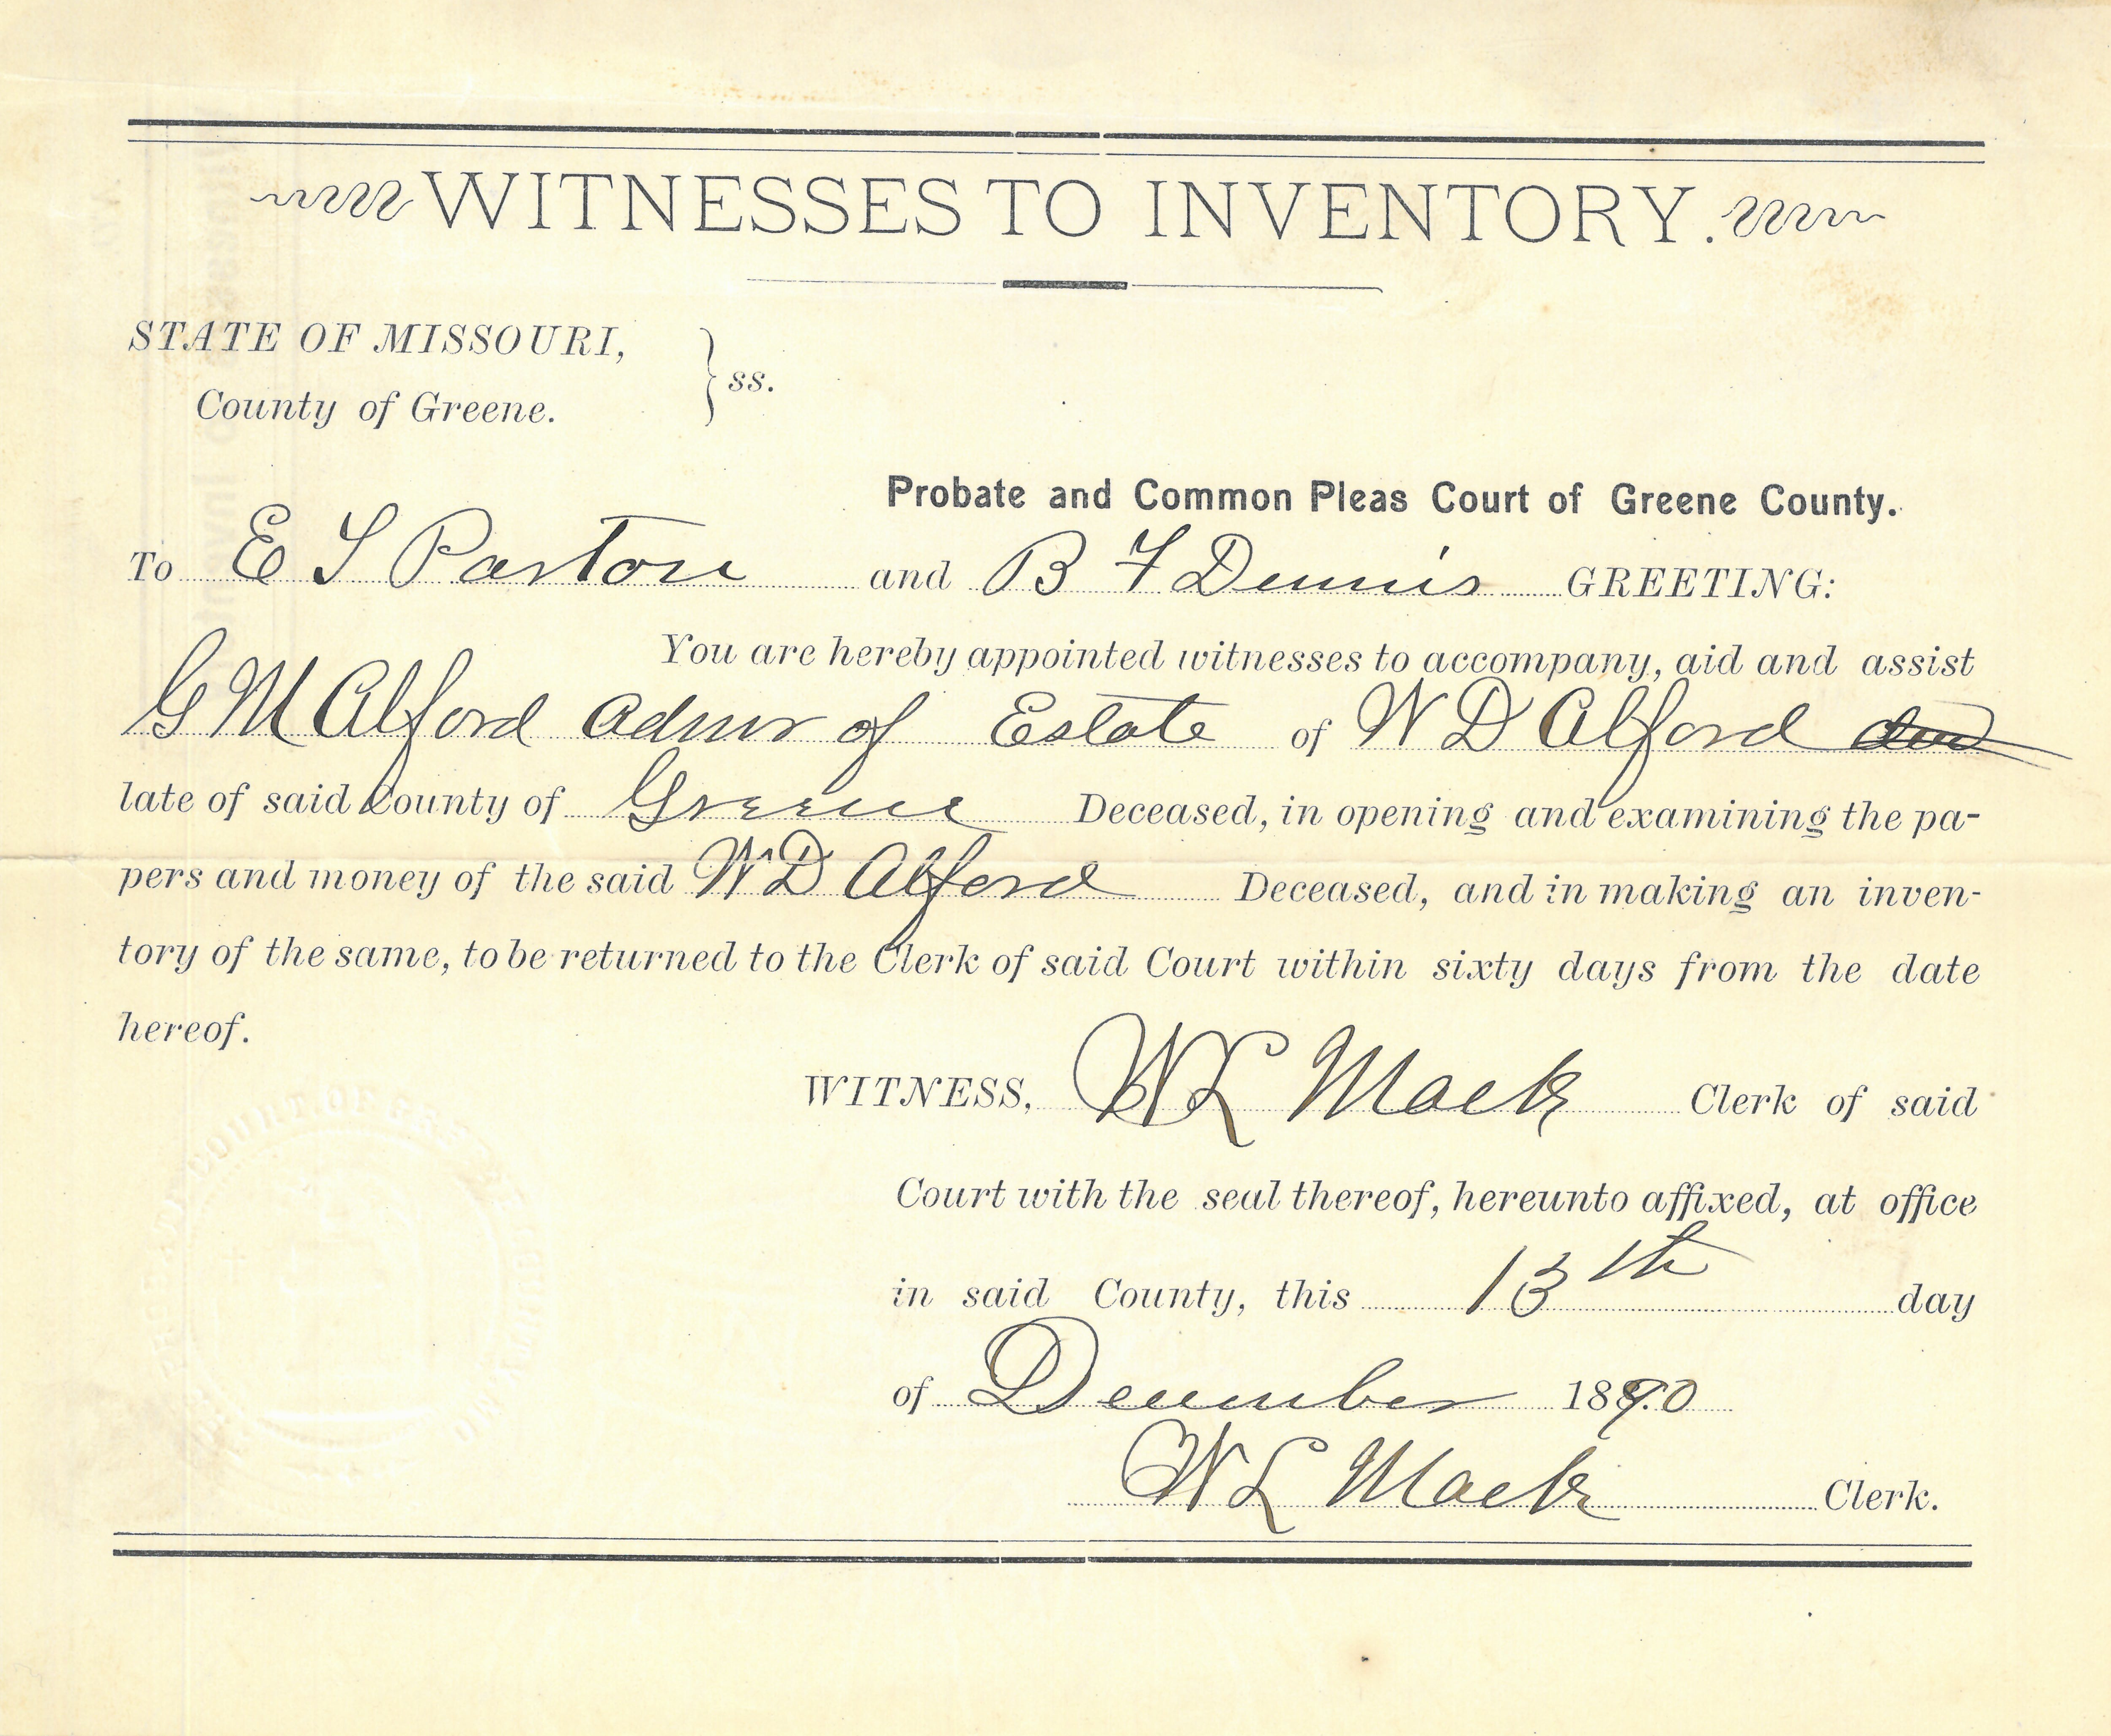 WITNESSES TO INVENTORY.
STATE OF MISSOURI,
County of Greene.
} ss.
Probate and Common Pleas Court of Greene County.
To E S Paxton and B F Dennis GREETING:
You are hereby appointed witnesses to accompany, aid and assist
G M Alford Admr of Estate of W D Alford
late of said County of Greene Deceased, in opening and examining the pa-
pers and money of the said W D Alford Deceased, and in making an inven-
tory of the same, to be returned to the Clerk of said Court within sixty days from the date
hereof.
WITNESS, W L Mack Clerk of said
Court with the seal thereof, hereunto affixed, at office
in said County, this 13th day
of December 1890
W L Mack Clerk.
COURT OF GREENE